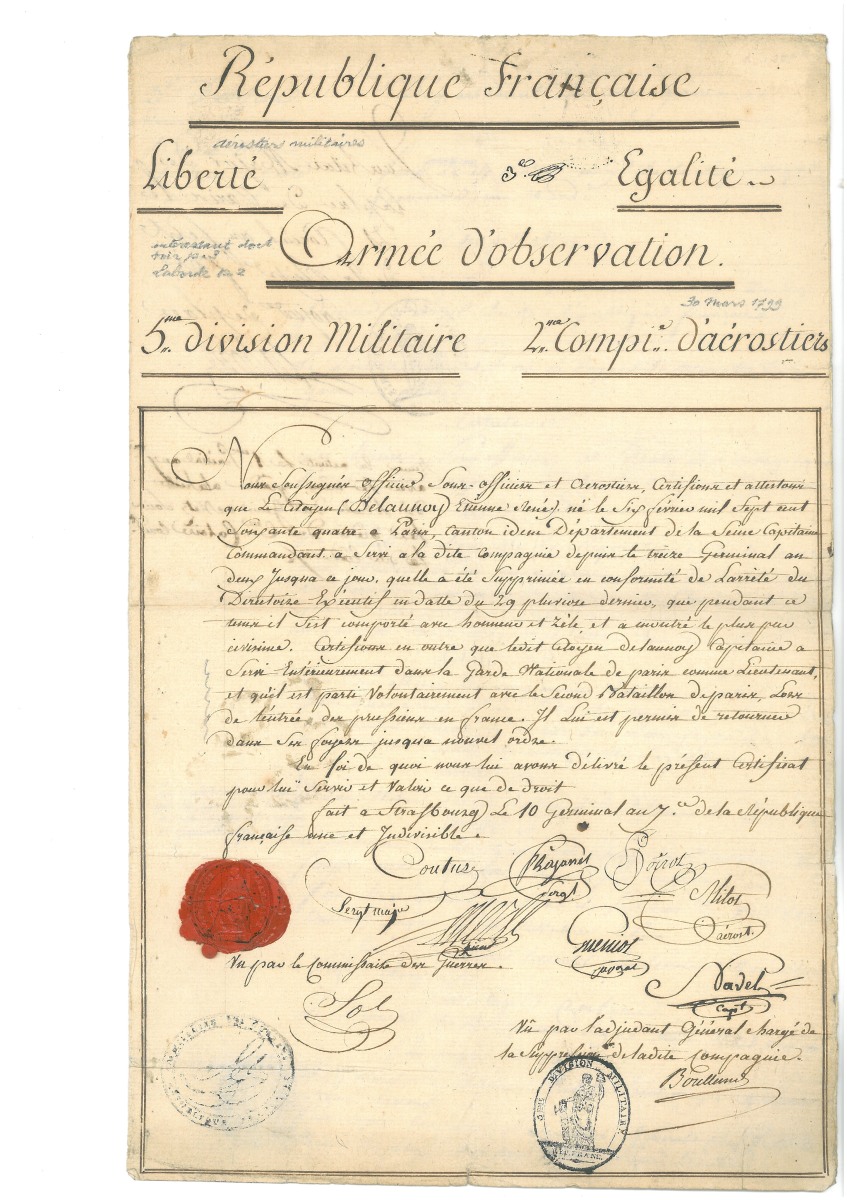 République Française
aérostiers militaires
Liberté
Egalité
intéressant doct
voir p. 3
Laborde
Armée d'observation.
30 Mars 1799
5me division Militaire
2me Compie d'aérostiers
Nous Soussignés officiers Sous-officiers et aerostiers, Certifions et attestons
que Le Citoyen (Delaunoy) Etienne René) né le Six fevrier mil Sept cent
Soixante quatre a Paris, canton idem Département de la Seine Capitaine
Commandant a Servi a la dite Compagnie depuis le treize Germinal an
deux Jusqua ce jour, quelle a été Supprimée en conformité de L'arrêté du
Directoire Exécutif en datte du 29 pluviose dernier, que pendant ce
tems il S'est comporté avec honneur et zèle et a montré le plus pur
civisme. Certifions en outre que ledit Citoyen delaunoy Capitaine a
Servi Entérieurement dans la Garde Nationale de paris comme Lieutenant,
et qu'il est parti Volontairement avec le Second Bataillon de paris, Lors
de l'entrée des prussiens en france. Il Lui est permis de retourner
dans Ses foyers jusqua nouvel ordre.
En foi de quoi nous lui avons délivré le présent Certificat
pour lui Servir et Valoir ce que de droit
fait a Strasbourg Le 10 Germinal an 7.e de la République
française une et Indivisible.
Couture
Poirot
Sergt major
Milot
aérost.
Vu par le Commissaire des Guerres.
Navel
Capt
Sol
Vû par l'adjudant Général chargé de
la Suppression de la dite compagnie.
5ME DIVISION MILITAIRE